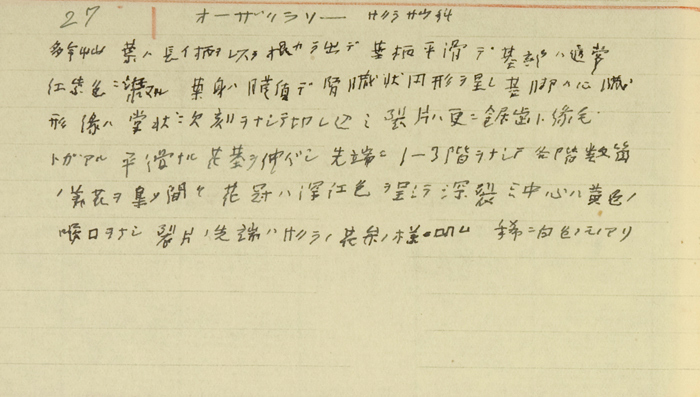 27 オーザリソリー サクラサウ科
多年艸 葉ハ長イ柄ヲ以テ根カラ出デ 葉柄平滑デ基部ハ通常
紅紫色ニ 葉身ハ膜質デ腎臓状円形ヲ呈シ基脚ハ心臓
形 縁ハ掌状ニ欠刻ヲナシテ切レ込ミ裂片ハ更ニ鋸歯ト縁毛
トガアル 平滑ナル花茎ヲ伸バシ先端ニ1−3階ヲナシテ各階数箇
ノ花ヲ 花冠ハ深紅色ヲ呈シテ深裂シ中心ハ黄色ノ
喉口ヲナシ 裂片ノ先端ハサクラノ花ノ様ニ凹ム 稀ニ白色ノモノアリ